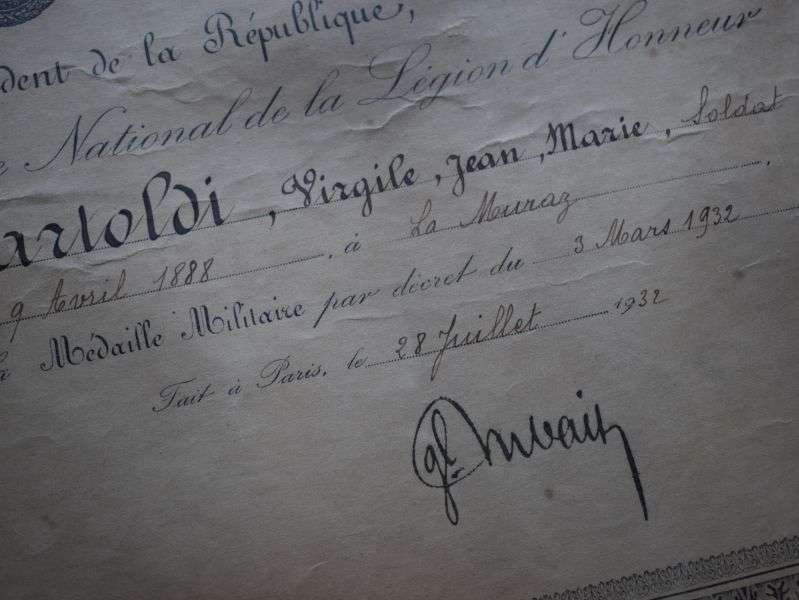 dent de la République,
National de la Légion d'Honneur
artoldi, Virgile, Jean, Marie, Soldat
9 Avril 1888, à La Muraz,
Médaille Militaire par décret du 3 Mars 1932
Fait à Paris, le 28 Juillet 1932